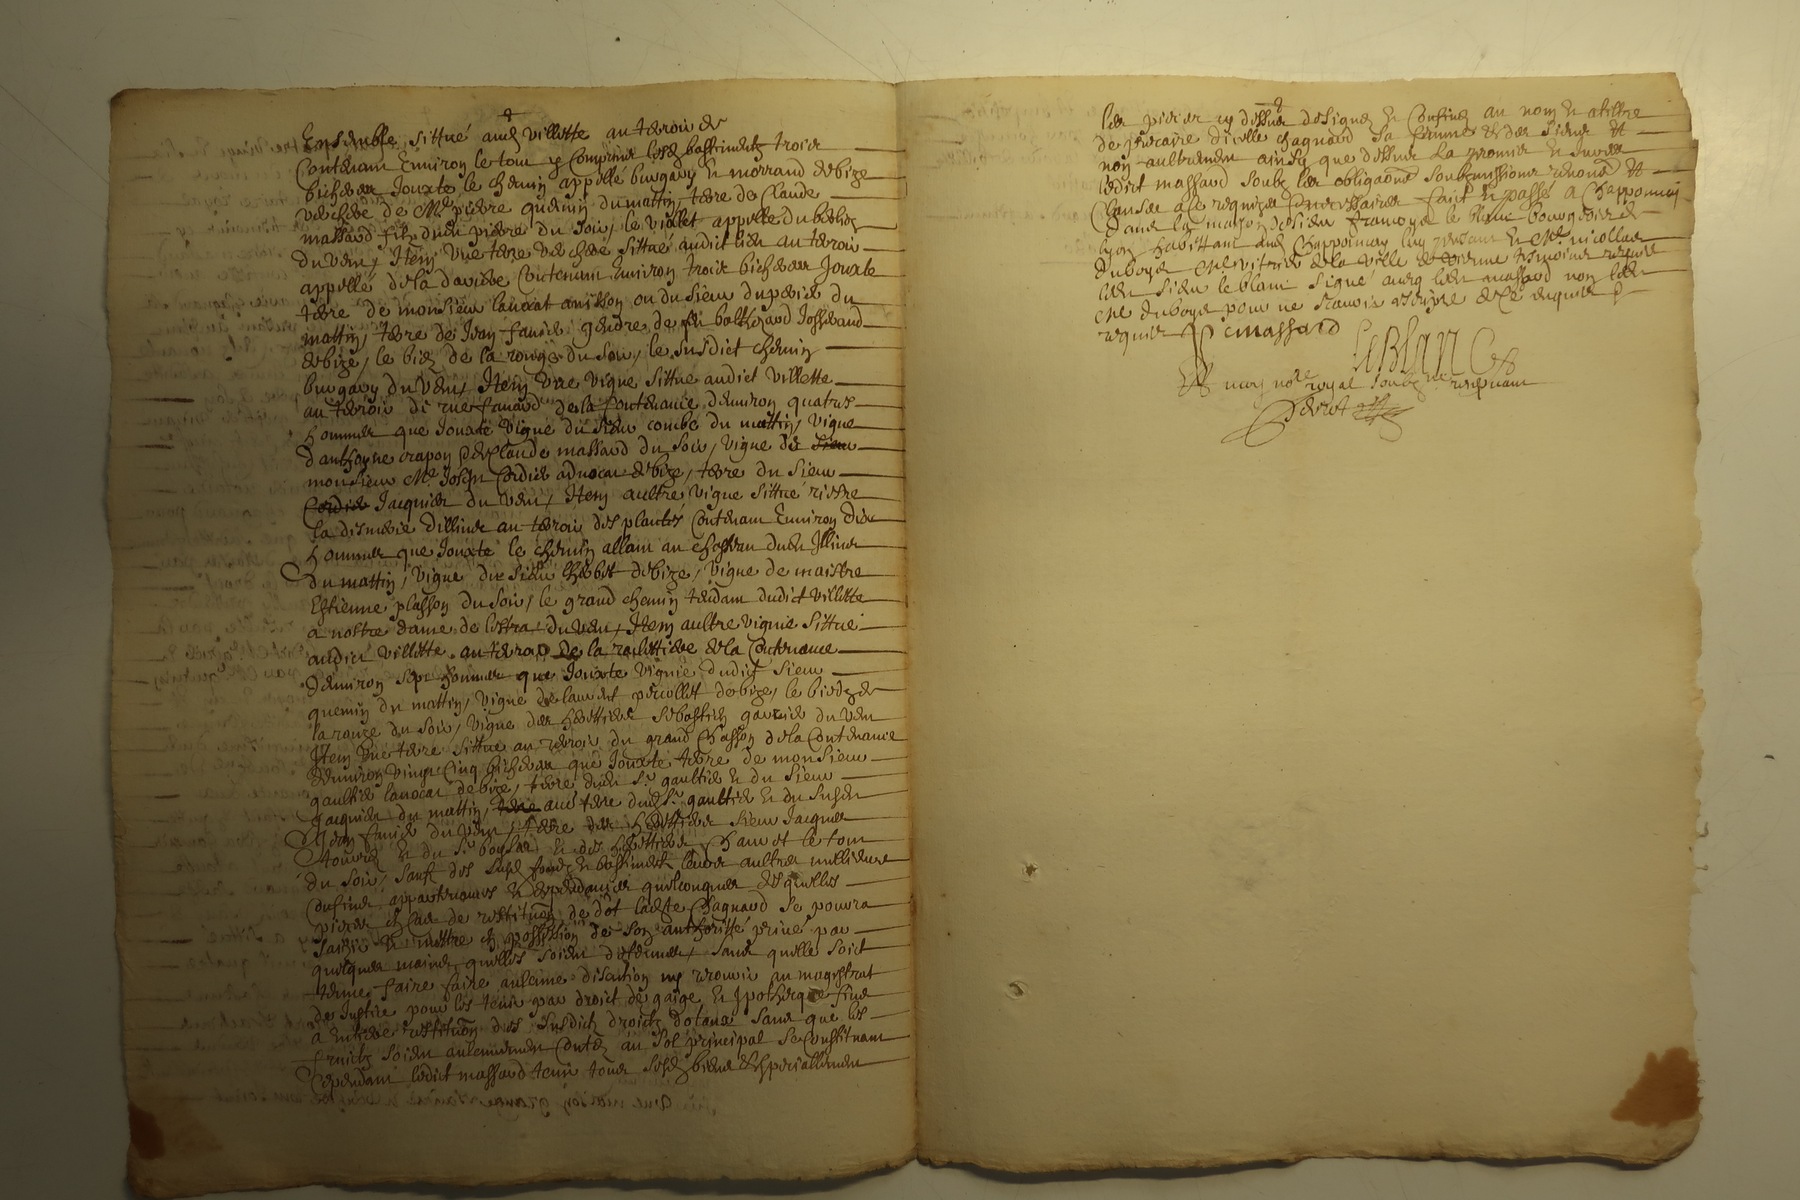 Ensemble, sittué aud villette au terroir de
Contenant Environ le tout y Comprins lesd bastiments trois
bicherées Jouxte le chemin appellé burgavy & morrand de bize
verchere de Mre pierre quemin du mattin, terre de Claude
massard filz dudit pierre du soir, le viollet appellé du
du vent, Item une terre verchere sittué audict lieu au terroir
appellé de la daviere Contenant Environ trois bicherées Jouxte
terre de monsieur lavocat anisson ou du sieur duperier du
mattin, terre de Jean favier gendre de feu balthezard Josserand
de bize, le biez de la rouze du soir, le susdict chemin
burgavy du vent, Item Une vigne sittué audict villette
au terroir de de la Contenance denviron quatre
hommes que Jouxte vigne du sieur combe du mattin, vigne
danthoyne crapon & de Claude massard du soir, vigne de
monsieur Mre Joseph Cordier advocat de bize, terre du sieur
Jacquier du vent, Item aultre vigne sittué
la dismerie dillins au terroir des plantés Contenant Environ dix
hommes que Jouxte le chemin allant au chasteau dud Illins
du mattin, vigne du sieur de bize, vigne de maistre
Estienne plasson du soir, le grand chemin tendant dudict villette
a nostre dame de lestra, du vent, Item aultre vigne sittué
audict villette au terroir de la de la Contenance
denviron sept hommes que Jouxte vigne dudict sieur
quemin du mattin, vigne de laurent percollet de bize, le biedz de
la rouze du soir, vigne des herittiers sebastien gautier du vent
Item Une terre sittué au terroir du grand Chasson de la Contenance
denviron vingt Cinq bicherées que Jouxte terre de monsieur
gaultier lavocat de bize, terre dudit Sr gaultier & du sieur
Jacquier du mattin, terre dud Sr gaultier & du susdit
Jean favier du vent, terre des herittiers sieur Jacquier
& du Sr & des herittiers et le tout
du soir, sauf des susd fonds & bastiments leurs aultres meilleurs
Confins appartenances & deppendances quelconques desquelles
pieces de restitution de dot ladite Chagnard se pourra
saisir & mettre en possession de son authoritté privé par
quelques mains quelles soient detenues, sans quelle soit
tenue faire faire aulcune discution ny recourir au magistrat
de Justice pour les tenir par droict de gaige & Ipotheque
a Entiere restitution des susdictz droictz dotaux sans que les
fruictz soient aulcunement Contés au sol principal se Constituant
Cependant ledict massard tenir tous sesd biens & speciallement
les pieces cy dessus designés & Confinés au nom & a tiltre
de precaire dicelle chagnard sa femme & des siens &
non aultrement ainsy que dessus la promis & Juré
ledict massard soubz les obligaons soubmissions renonc &
Clauses a ce requizes & necessaires faict & passé a Chapponnay
dans la maison de sieur francoys le blanc bourgeois de
lyon habittant aud Chapponnay luy present & Mre nicollas
duboys Mre vitrier de la ville de vienne tesmoins requis
led sieur le blanc signé avec led massard non led
Mre duboys pour ne scavoir escripre de ce enquis &
requis C massard
LeBlanc
Et moy nore royal soubzne recepvant